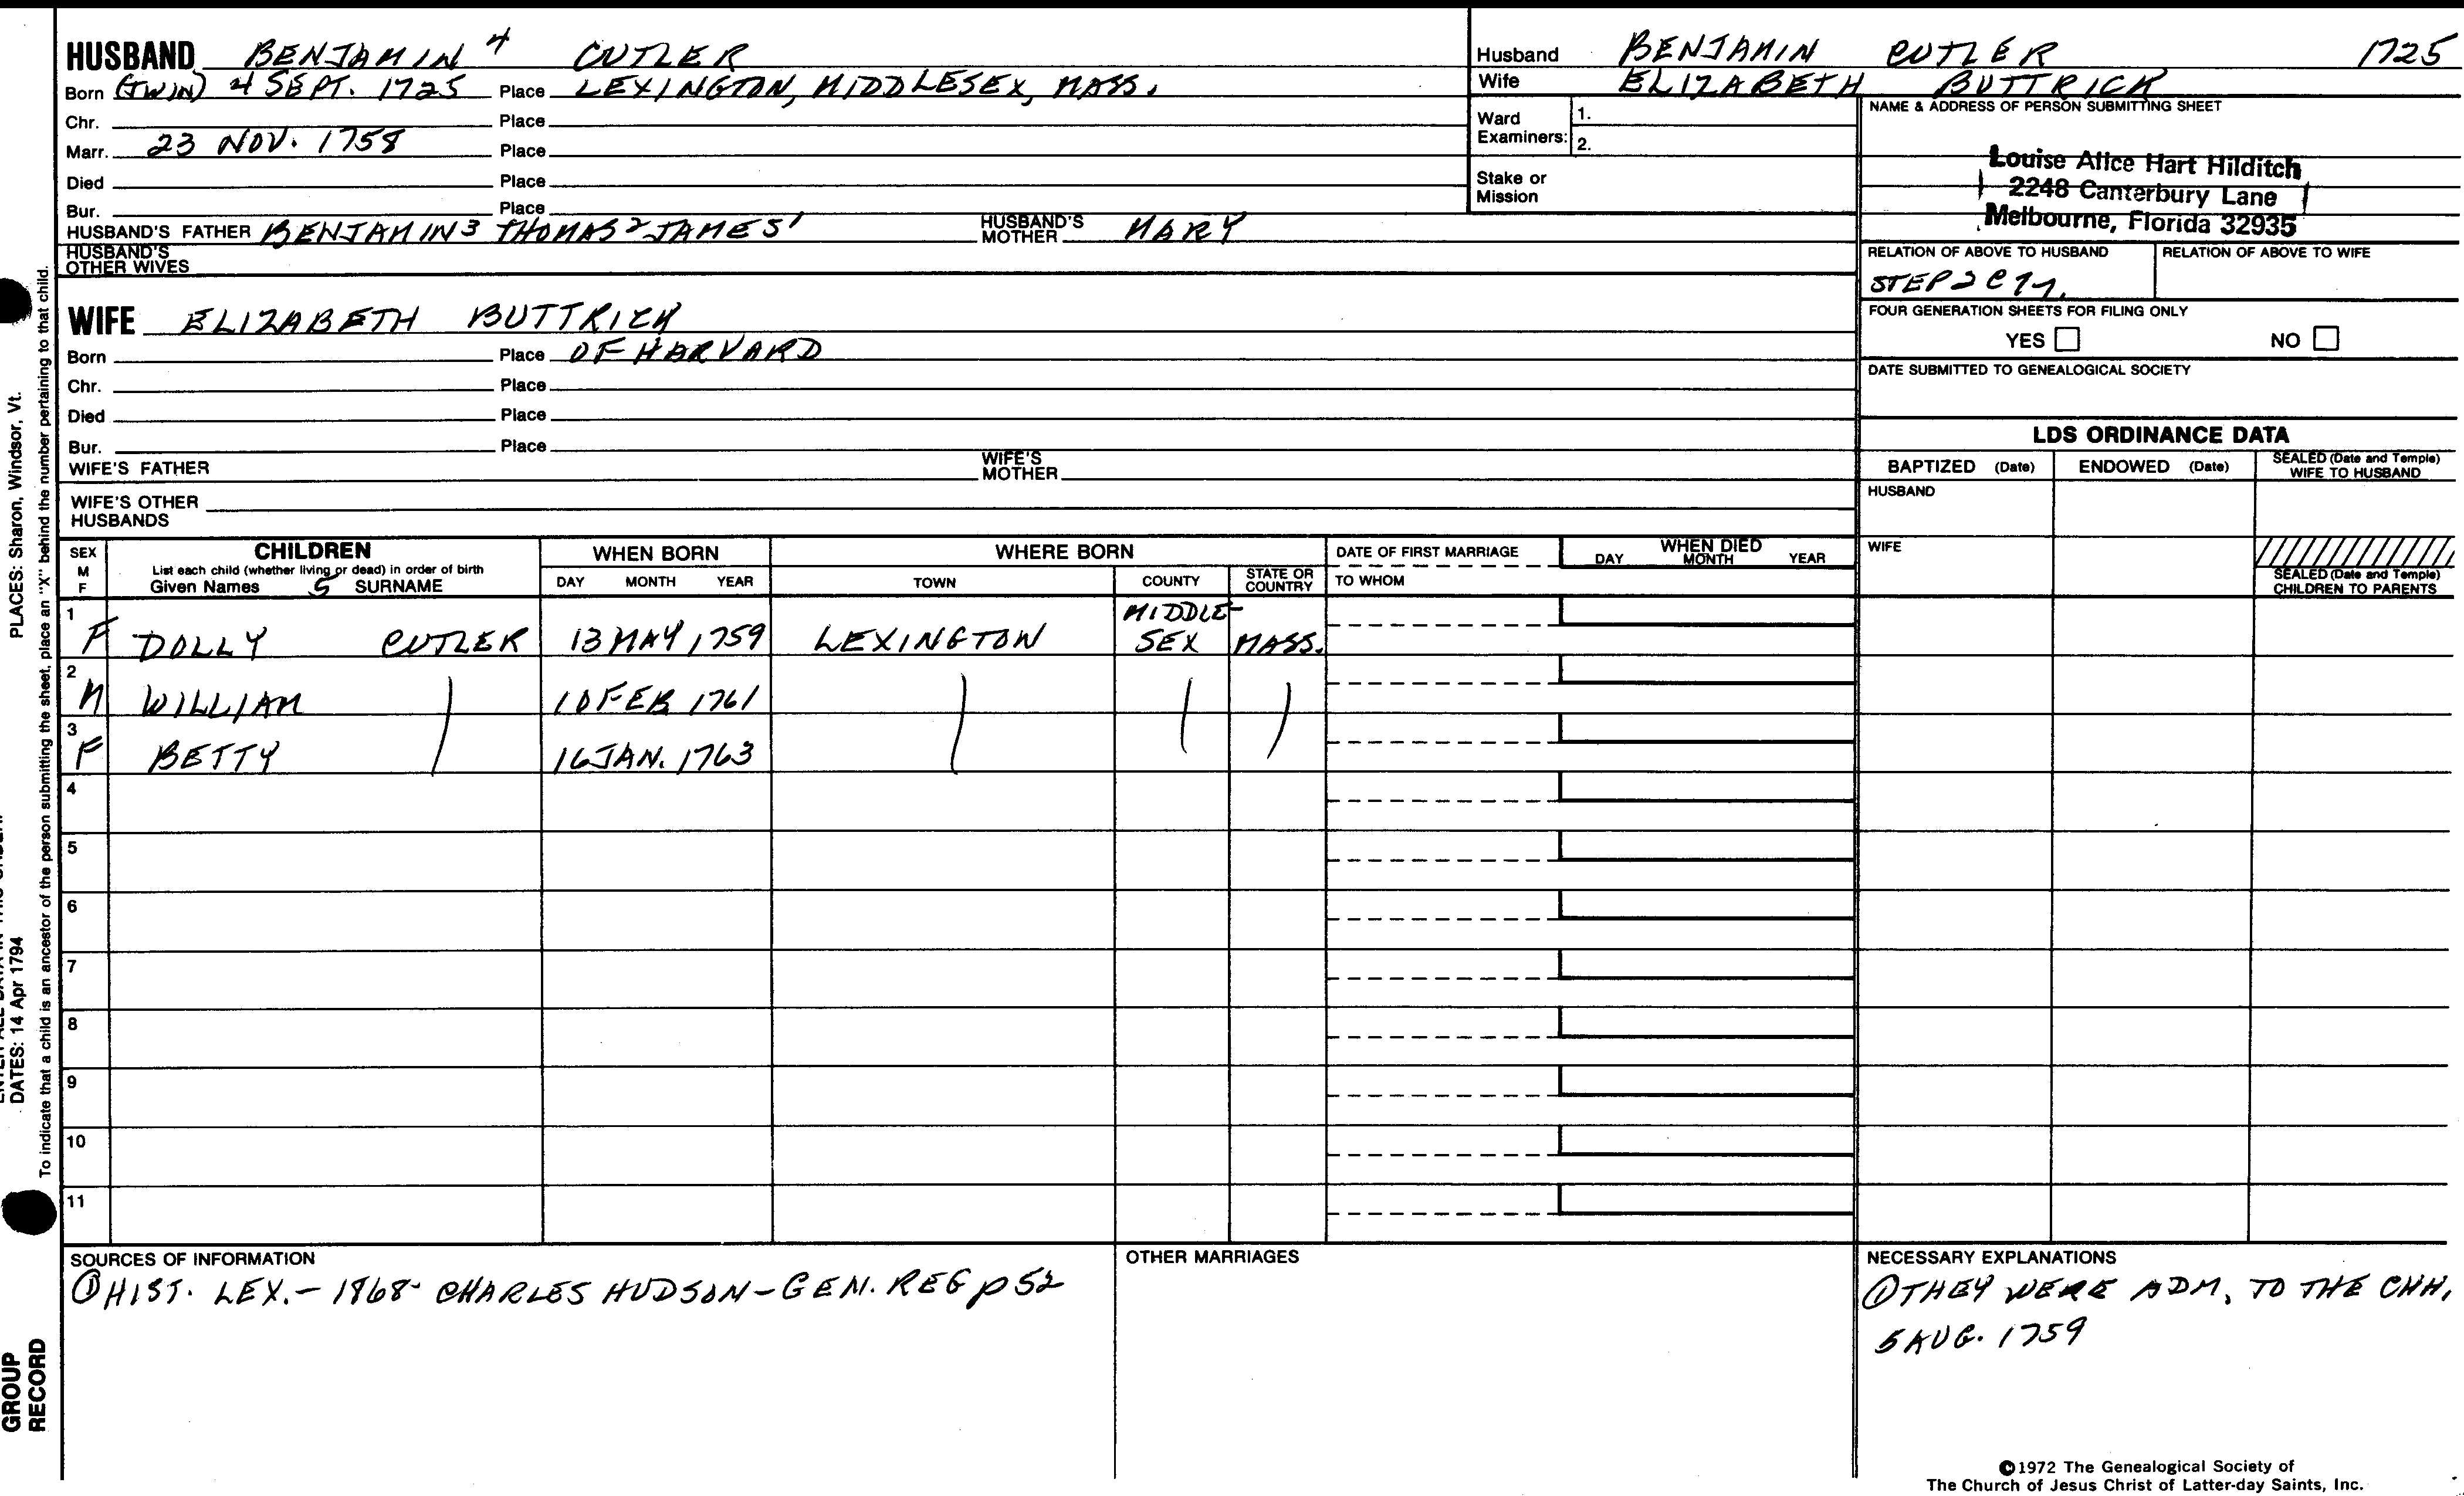 HUSBAND BENJAMIN 4 CUTLER
Born (TWIN) 4 SEPT. 1725 Place LEXINGTON, MIDDLESEX, MASS.
Chr. Place
Marr. 23 NOV. 1758 Place
Died Place
Bur. Place
HUSBAND'S FATHER BENJAMIN 3 THOMAS 2 JAMES 1 HUSBAND'S MOTHER MARY
HUSBAND'S OTHER WIVES
WIFE ELIZABETH BUTTRICK
Born Place OF HARVARD
Chr. Place
Died Place
Bur. Place
WIFE'S FATHER WIFE'S MOTHER
WIFE'S OTHER HUSBANDS
Husband BENJAMIN CUTLER 1725
Wife ELIZABETH BUTTRICK
Ward Examiners: 1.
2.
Stake or Mission
NAME & ADDRESS OF PERSON SUBMITTING SHEET
Louise Alice Hart Hilditch
2248 Canterbury Lane
Melbourne, Florida 32935
RELATION OF ABOVE TO HUSBAND RELATION OF ABOVE TO WIFE
STEP 2 C
FOUR GENERATION SHEETS FOR FILING ONLY
YES NO
DATE SUBMITTED TO GENEALOGICAL SOCIETY
LDS ORDINANCE DATA
BAPTIZED (Date) ENDOWED (Date) SEALED (Date and Temple) WIFE TO HUSBAND
HUSBAND
WIFE
SEALED (Date and Temple) CHILDREN TO PARENTS
SEX M F
CHILDREN
List each child (whether living or dead) in order of birth
Given Names 5 SURNAME
WHEN BORN
DAY MONTH YEAR
WHERE BORN
TOWN COUNTY STATE OR COUNTRY
DATE OF FIRST MARRIAGE
TO WHOM
WHEN DIED
DAY MONTH YEAR
1 F DOLLY CUTLER 13 MAY 1759 LEXINGTON MIDDLE-SEX MASS.
2 M WILLIAM 10 FEB 1761
3 F BETTY 16 JAN. 1763
4
5
6
7
8
9
10
11
SOURCES OF INFORMATION
① HIST. LEX. - 1868 - CHARLES HUDSON - GEN. REG p 52
OTHER MARRIAGES
NECESSARY EXPLANATIONS
① THEY WERE ADM. TO THE CHH,
5 AUG. 1759
©1972 The Genealogical Society of
The Church of Jesus Christ of Latter-day Saints, Inc.
PLACES: Sharon, Windsor, Vt.
DATES: 14 Apr 1794
To indicate that a child is an ancestor of the person submitting the sheet, place an "X" behind the number pertaining to that child.
GROUP
RECORD